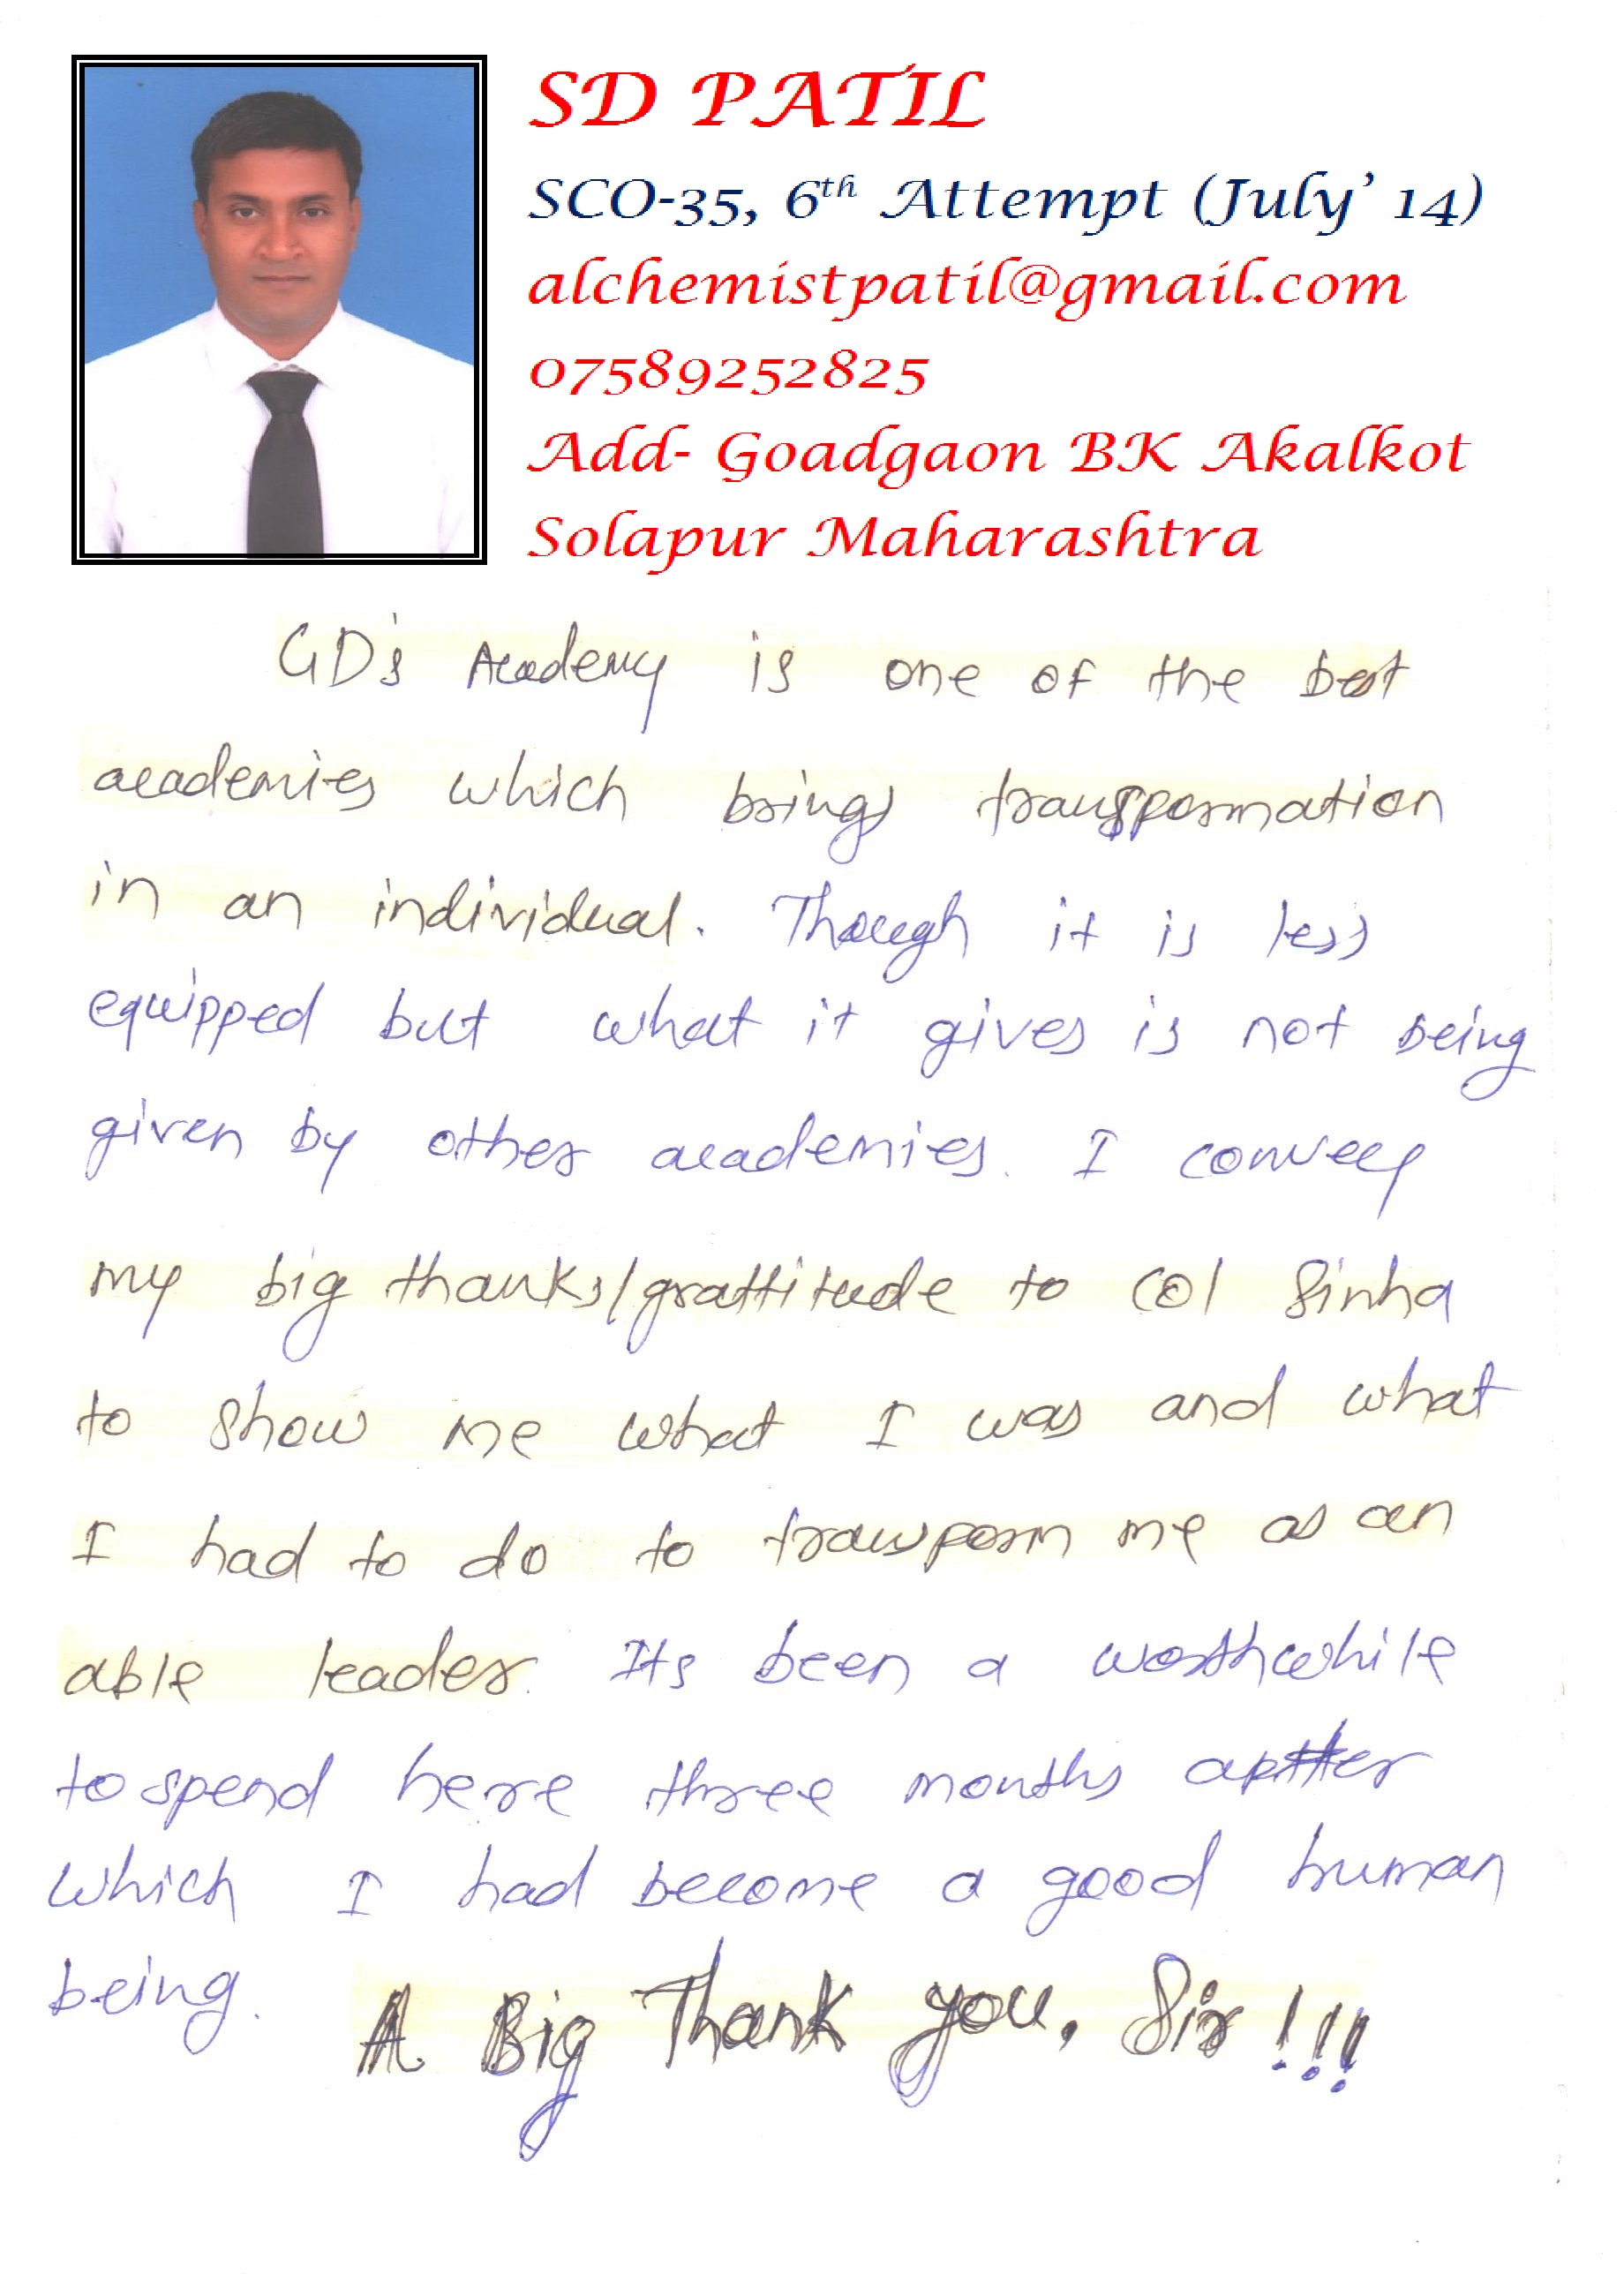 SD PATIL
SCO-35, 6th Attempt (July' 14)
alchemistpatil@gmail.com
07589252825
Add- Goadgaon BK Akalkot
Solapur Maharashtra
GD's Academy is one of the best
academies which brings transformation
in an individual. Though it is less
equipped but what it gives is not being
given by other academies. I convey
my big thanks/grattitude to Col Sinha
to show me what I was and what
I had to do to transform me as an
able leader. Its been a worthwhile
to spend here three months after
which I had become a good human
being. A Big Thank you, Sir!!!